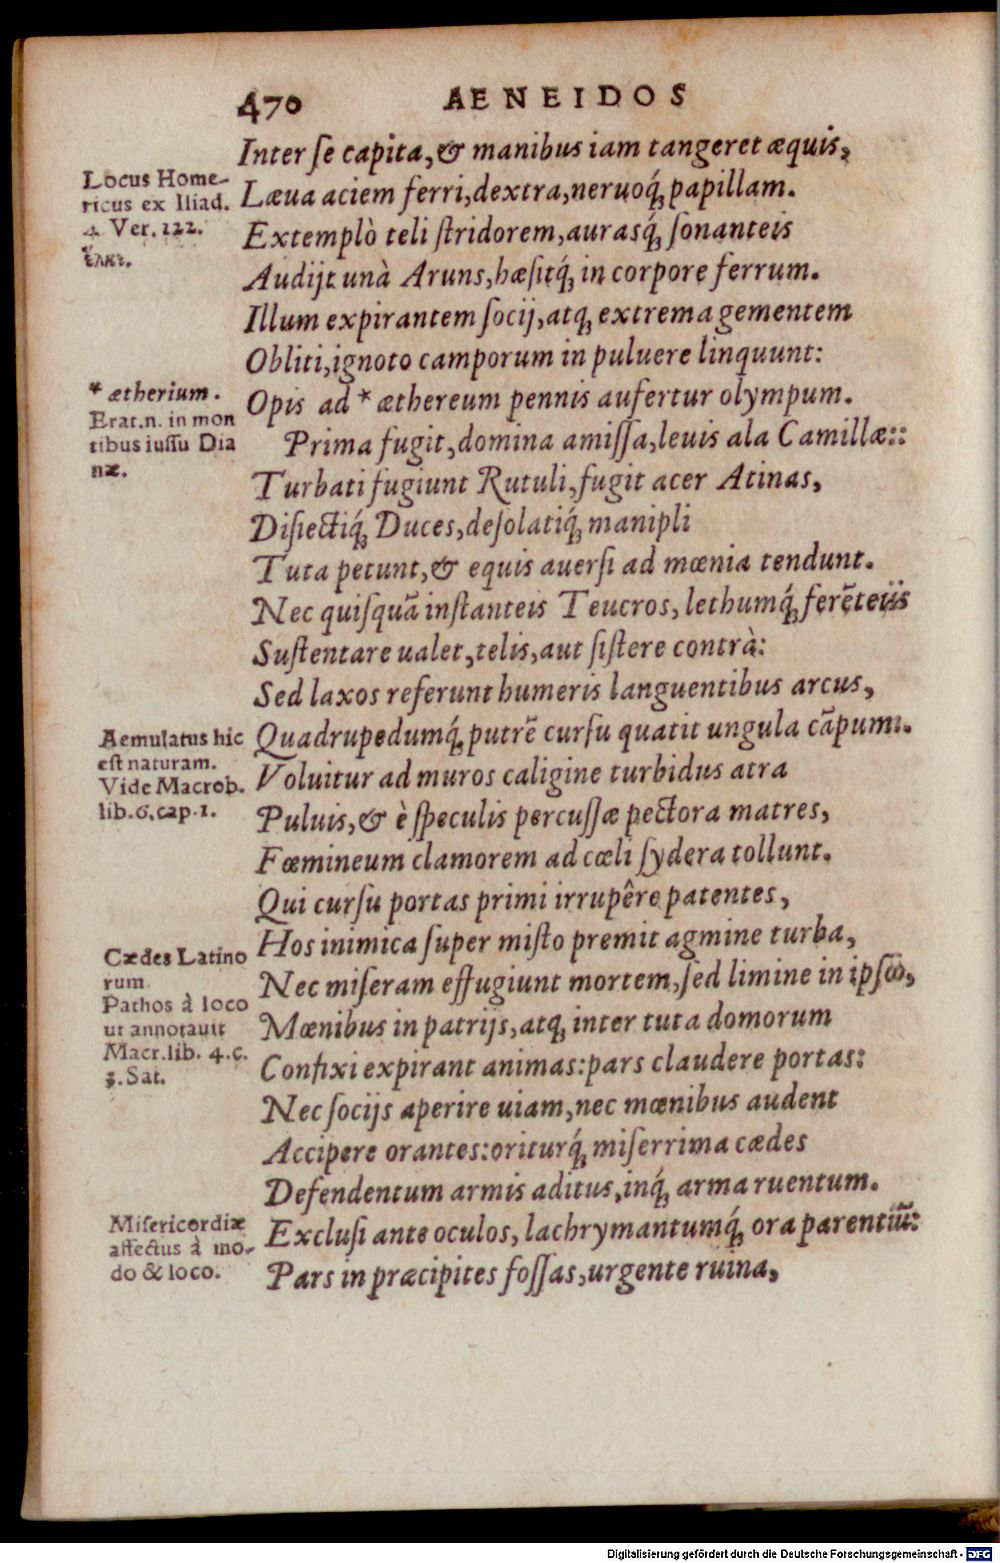 470 AENEIDOS
Inter ſe capita, & manibus iam tangeret æquis,
Læua aciem ferri, dextra, neruoq́; papillam.
Extemplò teli ſtridorem, aurasq́; ſonanteis
Audijt unà Aruns, hæſitq́; in corpore ferrum.
Illum expirantem ſocij, atq; extrema gementem
Obliti, ignoto camporum in puluere linquunt:
Opis ad * æthereum pennis aufertur olympum.
Prima fugit, domina amiſſa, leuis ala Camillæ::
Turbati fugiunt Rutuli, fugit acer Atinas,
Diſiectiq́; Duces, deſolatiq́; manipli
Tuta petunt, & equis auerſi ad mœnia tendunt.
Nec quiſquã inſtanteis Teucros, lethumq́; ferẽteis
Suſtentare ualet, telis, aut ſiſtere contrà:
Sed laxos referunt humeris languentibus arcus,
Quadrupedumq́; putrẽ curſu quatit ungula cãpum.
Voluitur ad muros caligine turbidus atra
Puluis, & è ſpeculis percuſſæ pectora matres,
Fœmineum clamorem ad cœli ſydera tollunt.
Qui curſu portas primi irrupêre patentes,
Hos inimica ſuper miſto premit agmine turba,
Nec miſeram effugiunt mortem, ſed limine in ipſo,
Mœnibus in patrijs, atq; inter tuta domorum
Confixi expirant animas: pars claudere portas:
Nec ſocijs aperire uiam, nec mœnibus audent
Accipere orantes: oriturq́; miſerrima cædes
Defendentum armis aditus, inq́; arma ruentum.
Excluſi ante oculos, lachrymantumq́; ora parentũ:
Pars in præcipites foſſas, urgente ruina,
Locus Home-
ricus ex Iliad.
4. Ver. 122.
ἕλκε.
* ætherium.
Erat.n. in mon
tibus iuſſu Dia
næ.
Aemulatus hic
eſt naturam.
Vide Macrob.
lib.6.cap.1.
Cædes Latino
rum.
Pathos à loco
ut annotauit
Macr.lib. 4.c.
3.Sat.
Miſericordiæ
affectus à mo-
do & loco.
Digitalisierung gefördert durch die Deutsche Forschungsgemeinschaft - DFG